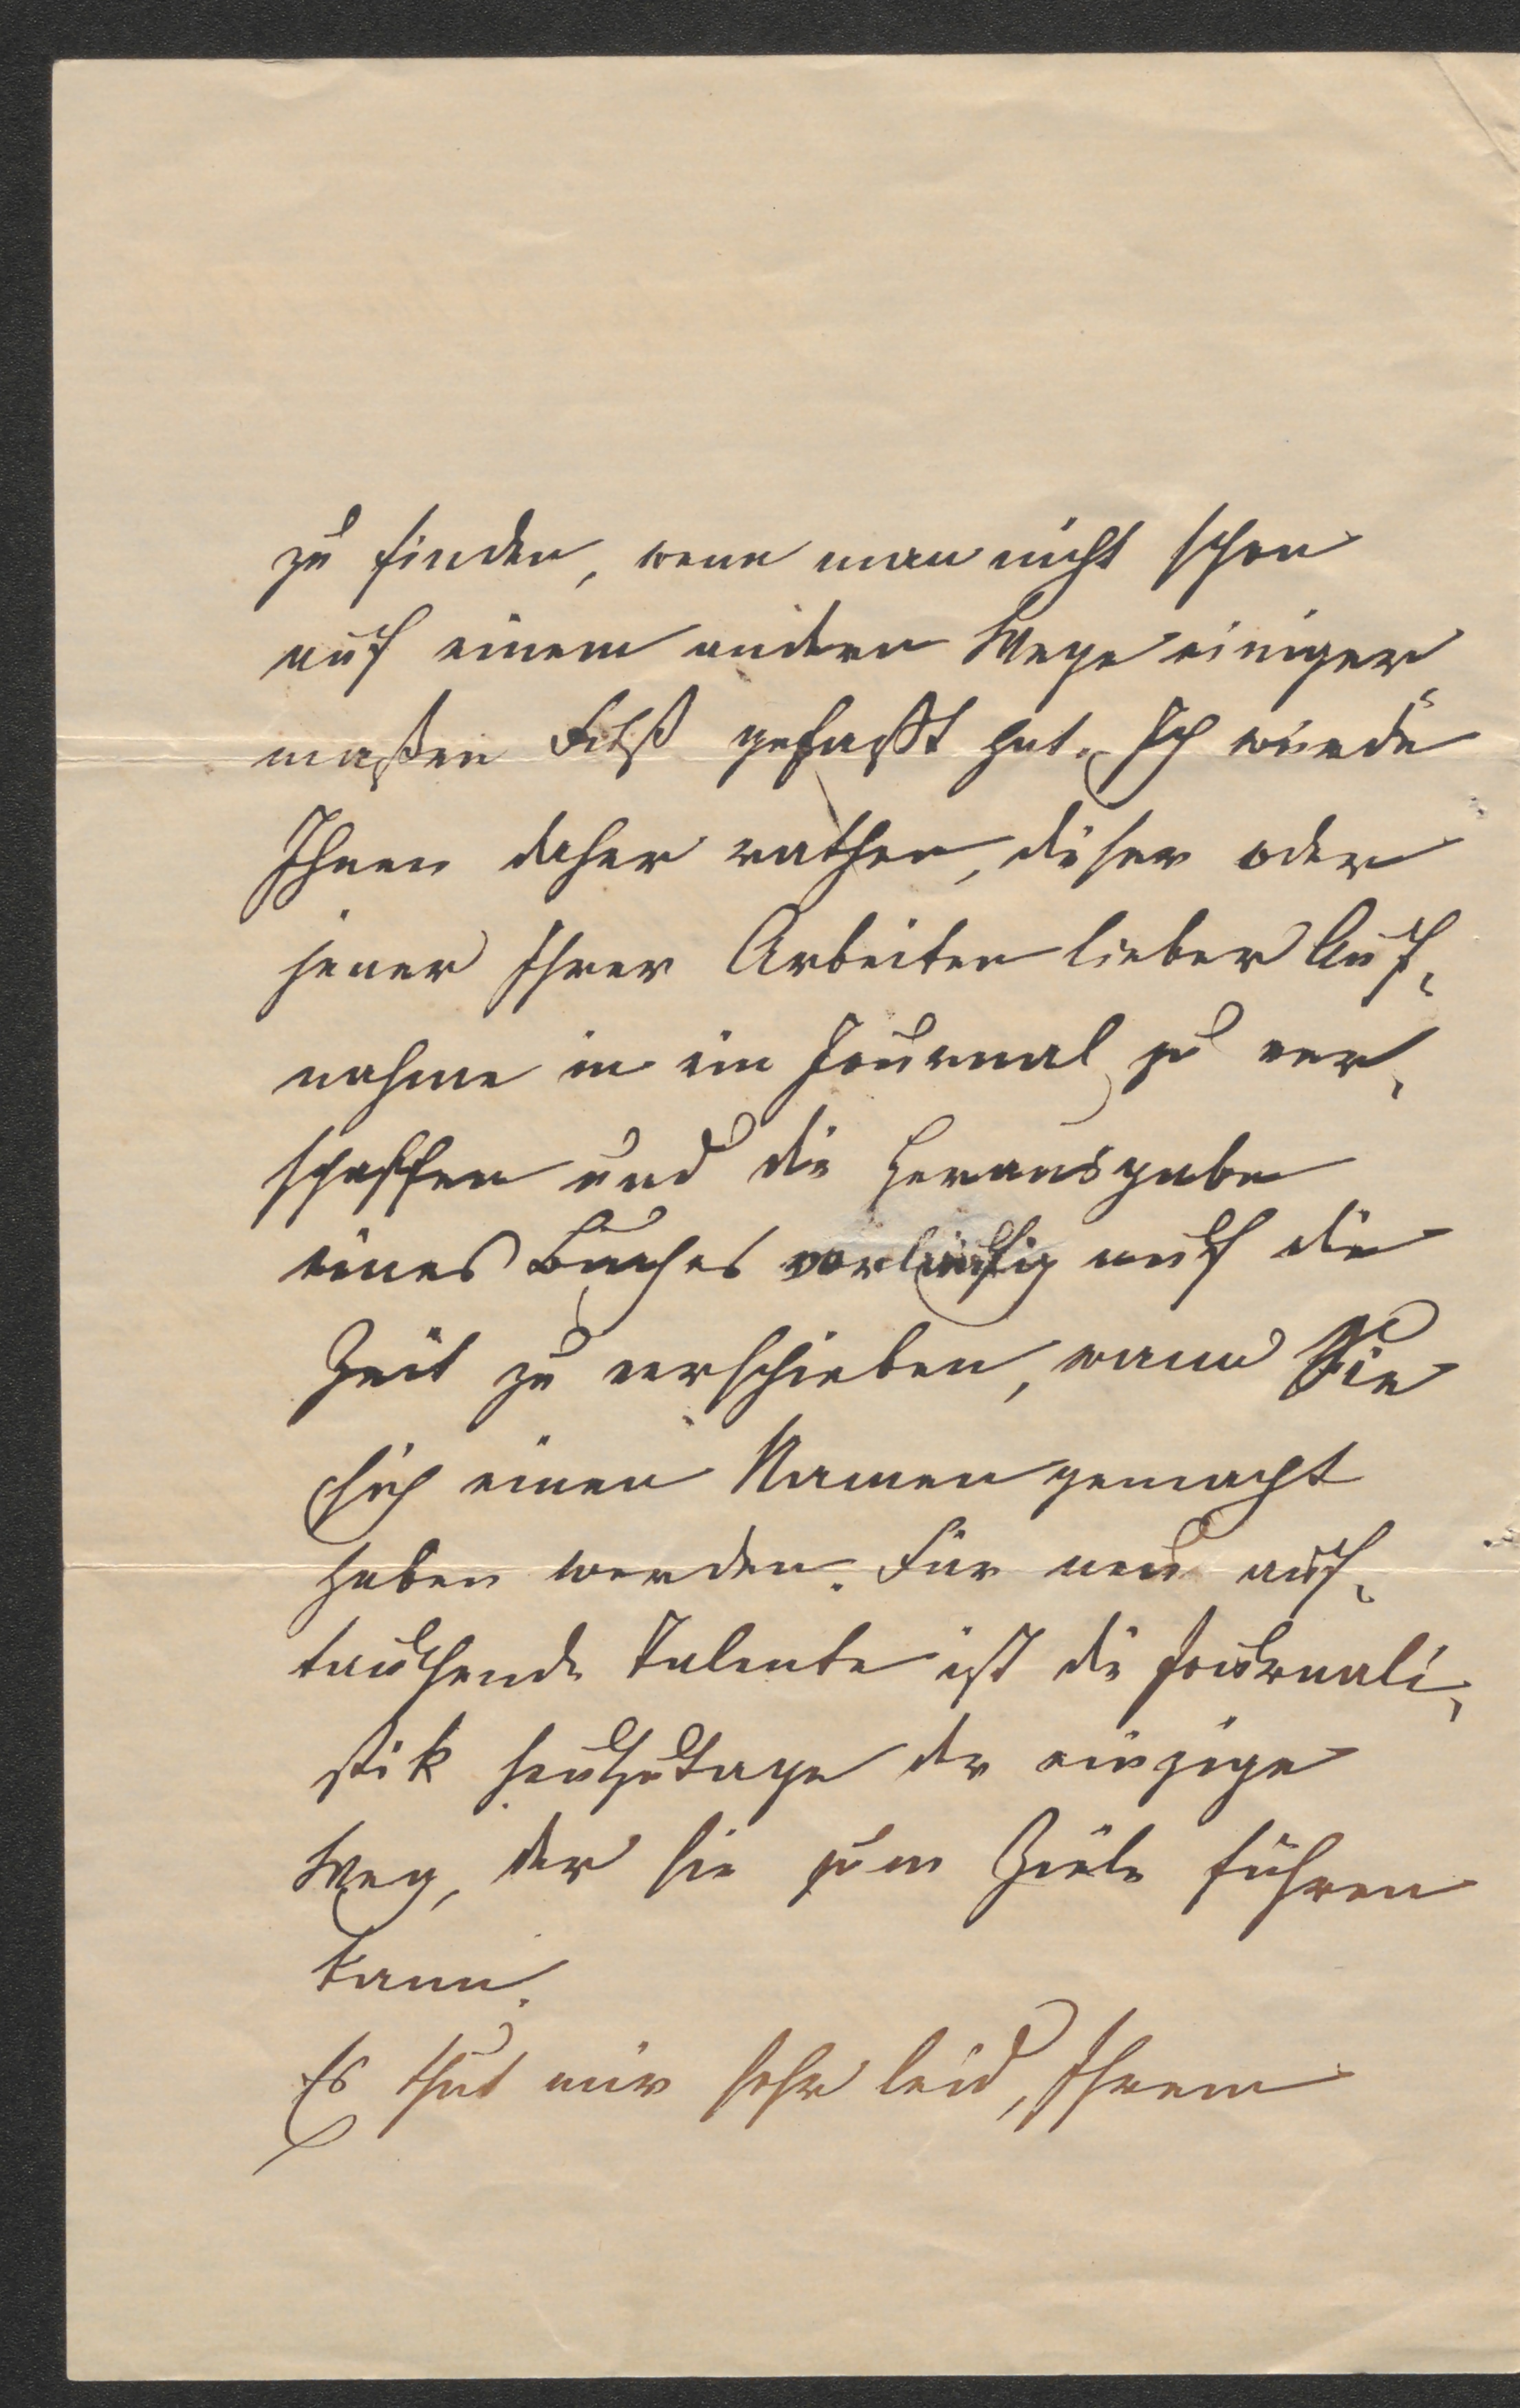 zu finden, wenn man nicht schon
auf einem andern Wege einiger-
maßen Fuß gefaßt hat. Ich würde
Ihnen daher rathen, dieser oder
jener Ihrer Arbeiten lieber Auf-
nahme in ein Journal zu ver-
schaffen und die Herausgabe
eines Buches vorläufig auf die
Zeit zu verschieben, wann Sie
sich einen Namen gemacht
haben werden. Für neu auf-
tauchende Talente ist die Journali-
stik heutzutage der einzige
Weg, der sie zum Ziele führen
kann.
Es thut mir sehr leid, Ihrem